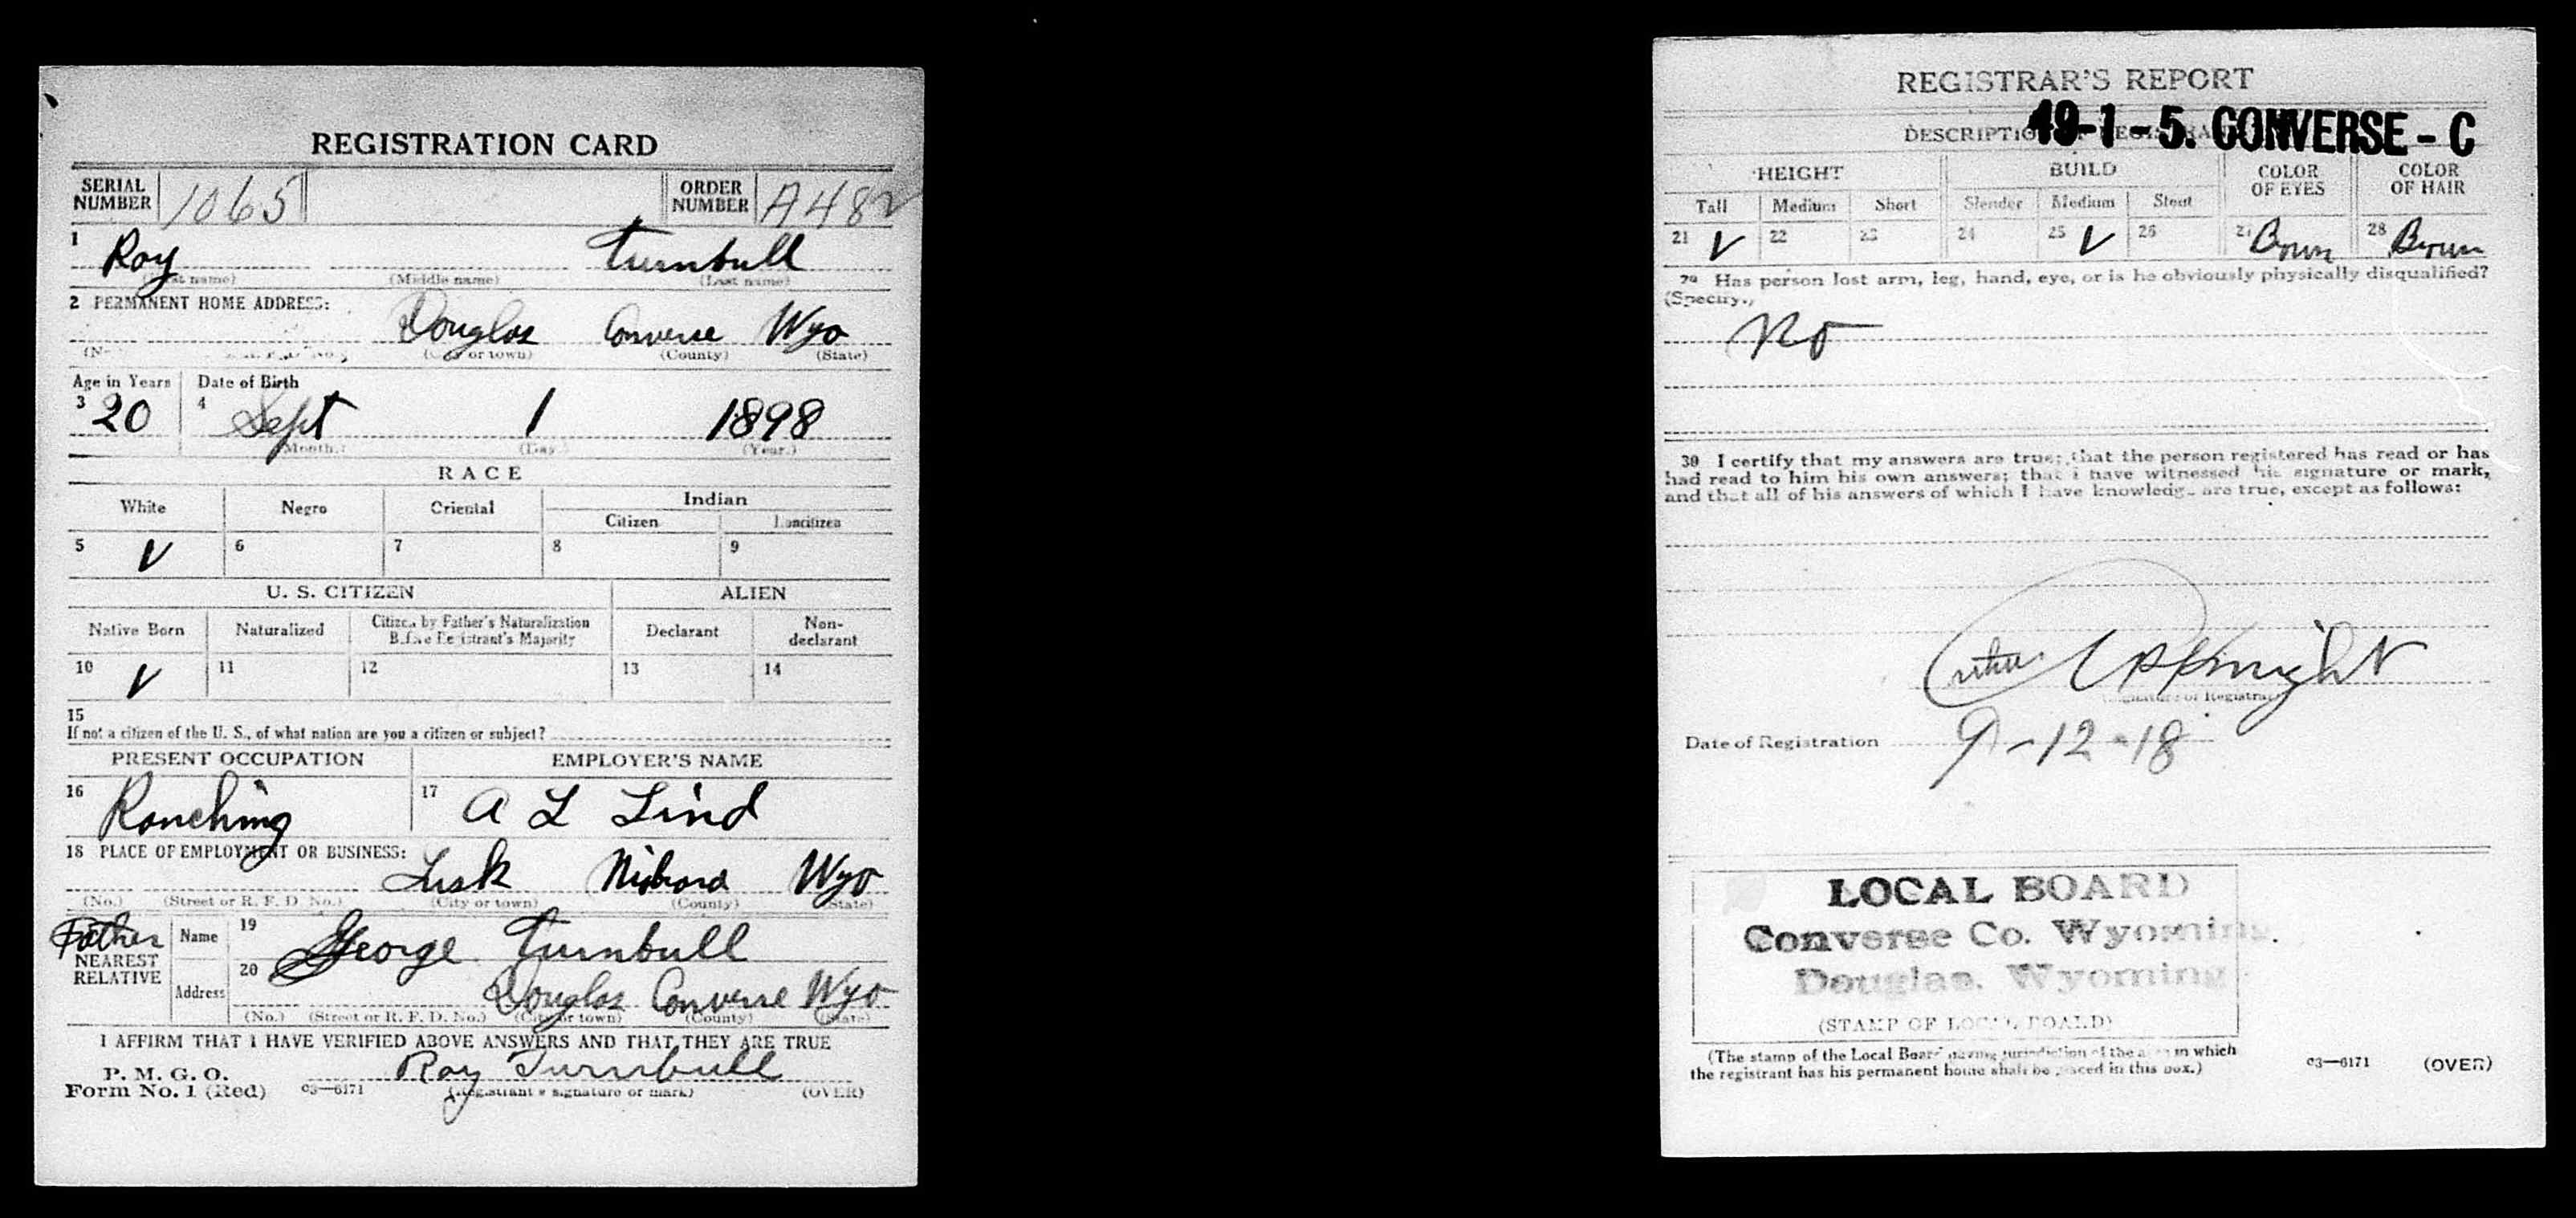 REGISTRATION CARD
SERIAL NUMBER 1065 ORDER NUMBER A482
1 Roy Turnbull
(Middle name) (Last name)
2 PERMANENT HOME ADDRESS:
Douglas Converse Wyo
(City or town) (County) (State)
Age in Years Date of Birth
3 20 4 Sept 1 1898
(Month.) (Day.) (Year.)
RACE
White Negro Oriental Indian
Citizen Noncitizen
5 V 6 7 8 9
U. S. CITIZEN ALIEN
Native Born Naturalized Citizen by Father's Naturalization Before Registrant's Majority Declarant Non-declarant
10 V 11 12 13 14
15
If not a citizen of the U. S., of what nation are you a citizen or subject?
PRESENT OCCUPATION EMPLOYER'S NAME
16 Ranching 17 A L Lind
18 PLACE OF EMPLOYMENT OR BUSINESS:
Lusk Niobrara Wyo
(No.) (Street or R. F. D. No.) (City or town) (County) (State)
Father
NEAREST RELATIVE Name 19 George Turnbull
Address 20 Douglas Converse Wyo
(No.) (Street or R. F. D. No.) (City or town) (County) (State)
I AFFIRM THAT I HAVE VERIFIED ABOVE ANSWERS AND THAT THEY ARE TRUE
P. M. G. O.
Form No. 1 (Red) 03—6171 Roy Turnbull
(Registrant's signature or mark) (OVER)
REGISTRAR'S REPORT
49-1-5. CONVERSE - C
HEIGHT BUILD COLOR OF EYES COLOR OF HAIR
Tall Medium Short Slender Medium Stout
21 V 22 23 24 25 V 26 27 Brown 28 Brown
29 Has person lost arm, leg, hand, eye, or is he obviously physically disqualified?
(Specify.)
No
30 I certify that my answers are true; that the person registered has read or has
had read to him his own answers; that I have witnessed his signature or mark,
and that all of his answers of which I have knowledge are true, except as follows:
(Signature of Registrar)
Date of Registration 9-12-18
LOCAL BOARD
Converse Co. Wyoming.
Douglas. Wyoming
(STAMP OF LOCAL BOARD)
(The stamp of the Local Board having jurisdiction of the area in which
the registrant has his permanent home shall be placed in this box.)
03—6171 (OVER)